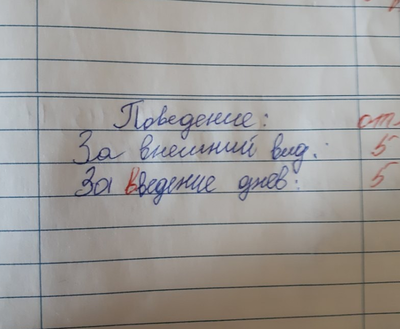 Поведение: отл
За внешний вид.: 5
За введение днев: 5